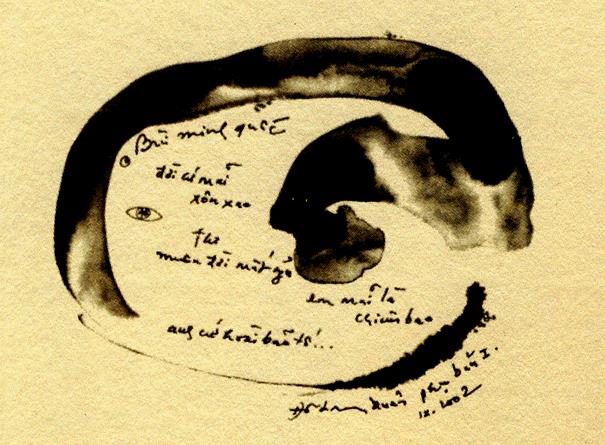 Bùi minh quốc
đời cứ mãi
xôn xao
thơ
muôn đời mất ngủ
em mãi là
chiêm bao
anh cứ hoài
phụ bản I.
IX. 2002